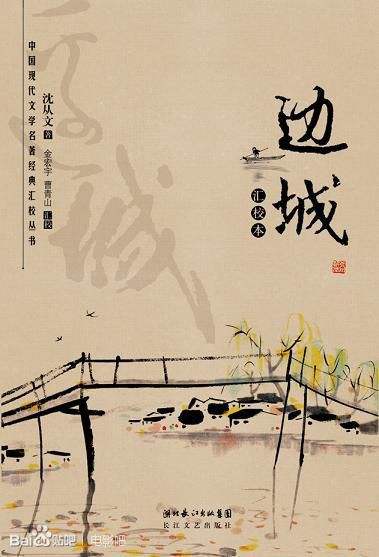 中国现代文学名著经典汇校丛书
沈从文 著
金宏宇 曹青山 汇校
边城
边城
汇校本
湖北长江出版集团
长江文艺出版社
Bai贴吧 | 电影吧